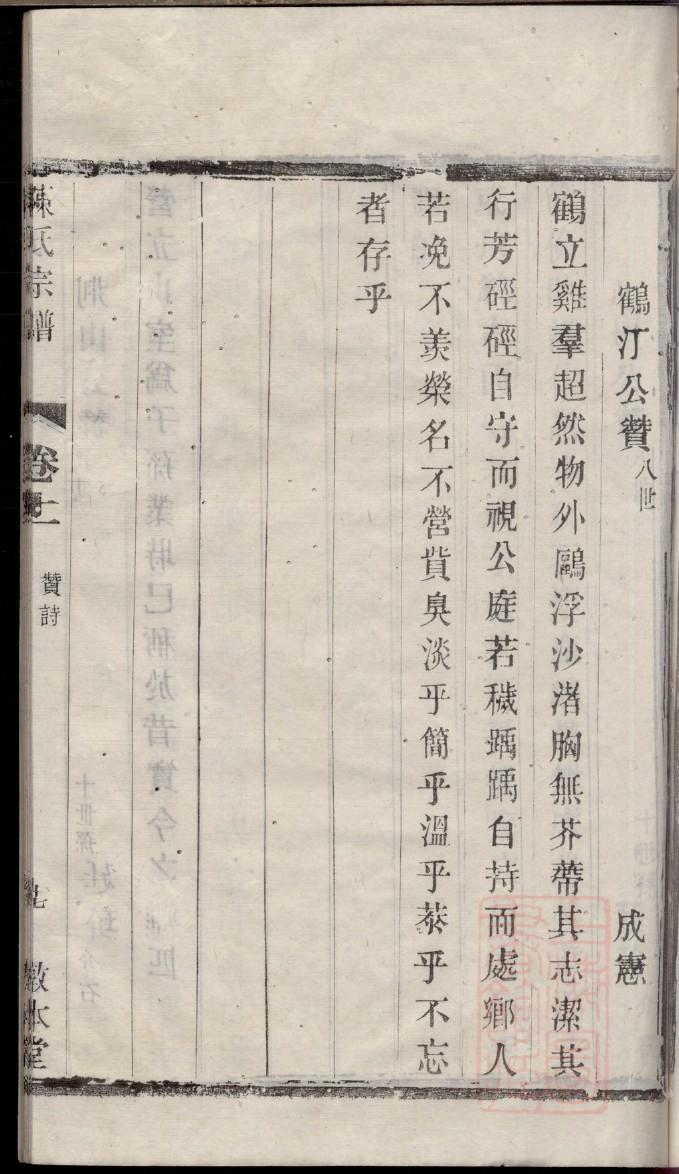 鶴汀公贊八世 成憲
鶴立雞羣超然物外鷗浮沙渚胸無芥蔕其志潔其
行芳硜硜自守而視公庭若穢踽踽自持而處鄉人
若浼不羨榮名不營貨臭淡乎簡乎溫乎恭乎不忘
者存乎
陳氏宗譜 卷十一 贊詩 敦本堂